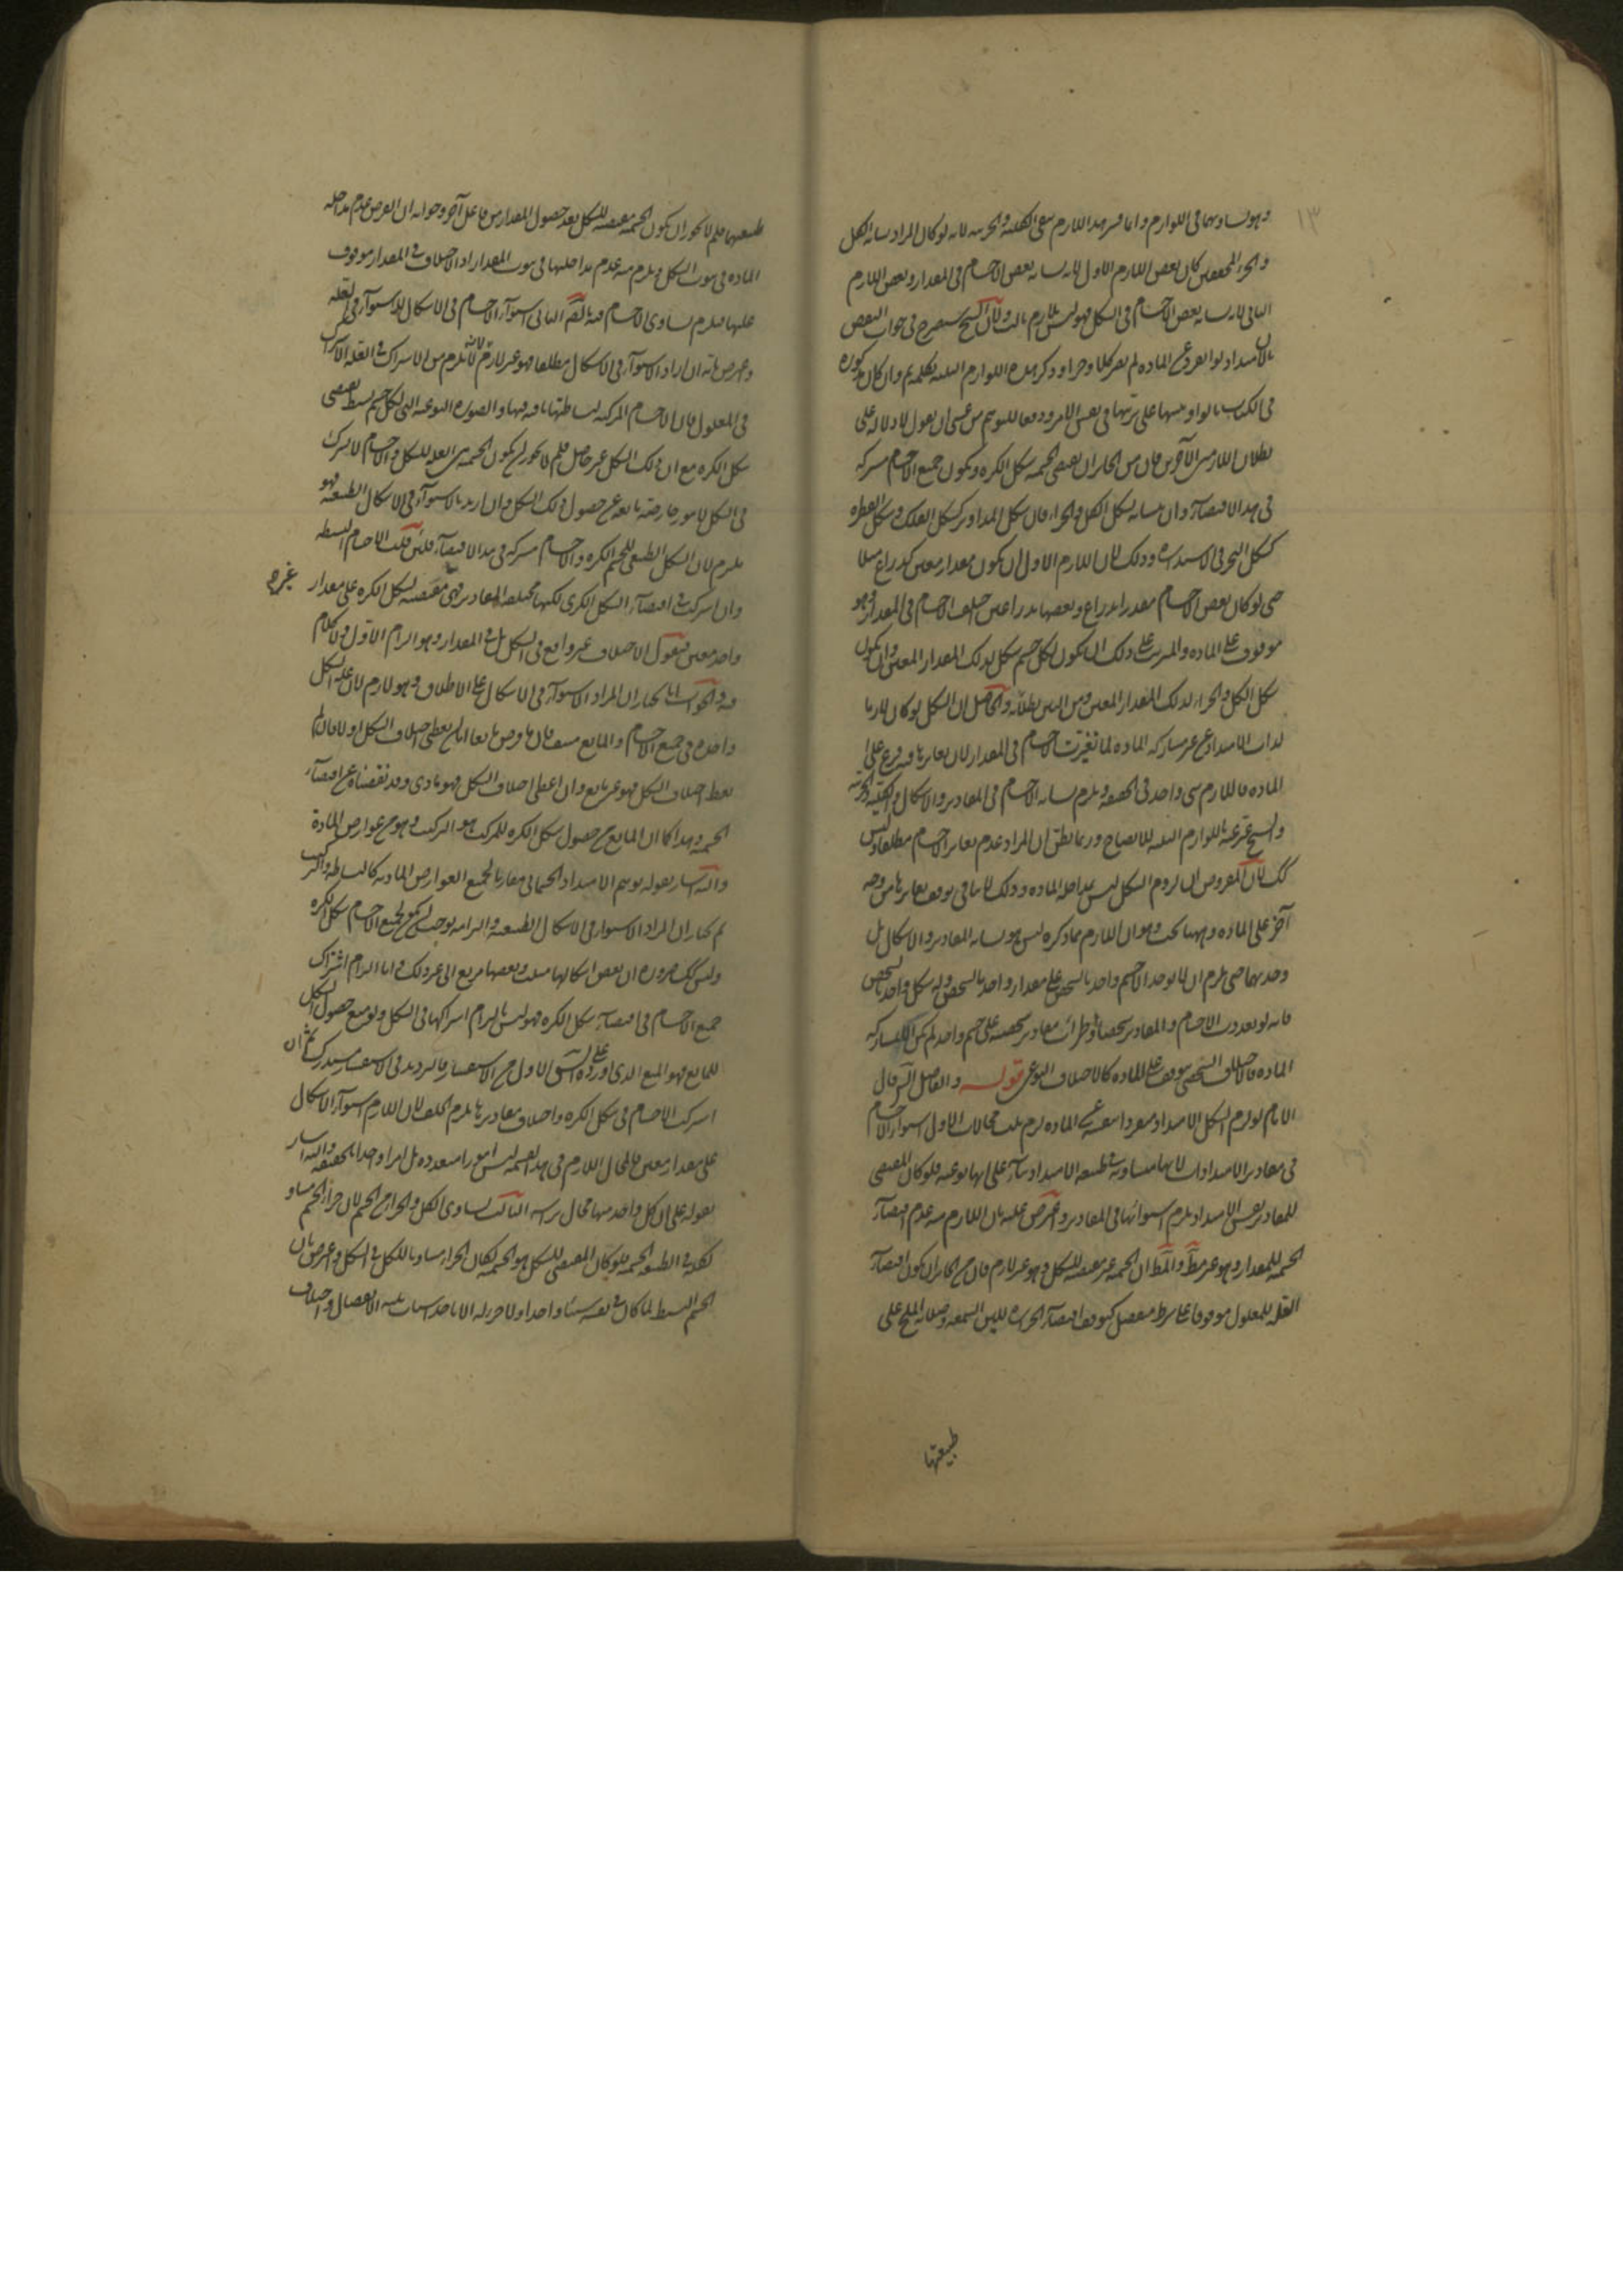 ١٣
وهو تساويهما في اللوازم وانما فسر هذا اللازم بنفي الكلية والجزئية لانه لو كان المراد تشابه الكل
والجزء المحققين كان بعض اللازم الاول لانه تشابه بعض الاجسام في المقدار وبعض اللازم
الثاني لانه تشابه بعض الاجسام في الشكل فهو ليس بلازم ثالث ولان الشيخ سيصرح في جواب النقض
بان الامتداد لو انفرد عن المادة لم يصر كلا وجزءا وذكر هذه اللوازم الثلثة بكلمة ثم وان كان مذكورة
في الكتاب بالواو تنبيها على ترتبها في نفس الامر ودفعا لتوهم من عسى ان يقول لا دلالة على
بطلان اللازمين الآخرين فان من الجائز ان يقتضي الجسمية شكل الكرة ويكون جميع الاجسام مشتركة
في هذا الاقتضاء وان تشابه شكل الكل والجزء فان شكل التداوير كشكل الفلك وشكل القطرة
كشكل البحر في الاستدارة وذلك لان اللازم الاول ان يكون مقدار معين كذراع مثلا
حتى لو كان بعض الاجسام مقدرا بذراع وبعضها بذراعين اختلف الاجسام في المقدار وهو
موقوف على المادة والمترتب على ذلك ان يكون لكل جسم شكل بذلك المقدار المعين وان يكون
شكل الكل والجزء لذلك المقدار المعين ومن البين بطلانه والحاصل ان الشكل لو كان لازما
لذات الامتداد عن غير مشاركة المادة لما تغيرت الاجسام في المقدار لان تغايرها فيه فرع على
المادة فاللازم شيء واحد في الحقيقة ويلزم تشابه الاجسام في المقادير والاشكال والكلية والجزئية
والشيخ عبر عنه باللوازم الثلثة للايضاح وربما يظن ان المراد عدم تغاير الاجسام مطلقا وليس
كك لان المفروض ان لزوم الشكل ليس بمداخلة المادة وذلك لا ينافي توقف تغايرها من وجه
آخر على المادة وههنا بحث وهو ان اللازم مما ذكره ليس هو تشابه المقادير والاشكال بل
وحدتهما حتى يلزم ان لا يوجد الا جسم واحد بالشخص على مقدار واحد بالشخص وله شكل واحد بالشخص
فانه لو تعددت الاجسام والمقادير شخصا او طرأت مقادير شخصية على جسم واحد لم يكن الا لمشاركة
المادة فالاختلاف الشخصي موقوف على المادة كالاختلاف النوعي قوله والفاضل الش قال
الامام لو لزم الشكل الامتداد منفردا بنفسه عن المادة لزم ثلث محالات الاول استواء الاجسام
في مقادير الامتدادات لانها متساوية في طبيعة الامتداد بناء على انها نوعية فلو كان المقتضي
للمقادير نفس الامتداد يلزم استوائها في المقادير واعترض عليه بان اللازم منه عدم اقتضاء
الجسمية للمقدار وهو غير مط والمط ان الجسمية غير مقتضية للشكل وهو غير لازم فان من الجائز ان يكون اقتضاء
العلة للمعلول موقوفا على شرط منفصل كتوقف اقتضاء الحرارة لليين الشمعة وصلابة الملح على
طبيعتها
طبيعتهما فلم لا يجوز ان يكون الجسمية مقتضية للشكل بعد حصول المقدار من فاعل آخر وجوابه ان الفرض عدم مداخلة
المادة في ثبوت الشكل ويلزم منه عدم مداخلتها في ثبوت المقدار اذ الاختلاف في المقدار موقوف
عليها فيلزم تساوي الاجسام فيه الثاني استواء الاجسام في الاشكال للاستواء في العلة
واعترض بانه ان اراد الاستواء في الاشكال مطلقا فهو غير لازم لانه لا يلزم من الاشتراك في العلة الاشتراك
في المعلول فان الاجسام المركبة لبساطتها باقية فيها والصورة النوعية التي لكل جسم بسيط تقتضي
شكل الكرة مع ان ذلك الشكل غير حاصل فلم لا يجوز ان يكون الجسمية هي العلة للشكل والاجسام لا يشترك
في الشكل لامور خارجية مانعة عن حصول ذلك الشكل وان اريد بالاستواء في الاشكال الطبيعية فهو
ملزم لان الشكل الطبيعي للجسم الكرة والاجسام مشتركة في هذا الاقتضاء فلئن قلت الاجسام البسيطة
وان اشتركت في اقتضاء الشكل الكري لكنها مختلفة المقادير فهي مقتضية لشكل الكرة على مقدار غيره
واحد معين فنقول الاختلاف غير واقع في الشكل بل في المقدار وهو الزام الاول ولا كلام
فيه والجواب انا نختار ان المراد الاستواء في الاشكال على الاطلاق وهو لازم لان علة الشكل
واحدة في جميع الاجسام والمانع منتف فان ما فرض مانعا ان لم يعطي اختلاف الشكل اولا فان لم
يعط اختلاف الشكل فهو غير مانع وان اعطى اختلاف الشكل فهو مادي وقد نقضناه عن اقتضاء
الجسمية وهذا كما ان المانع من حصول شكل الكرة للمركب هو التركيب وهو من عوارض المادة
واليه اشار بقوله توهم الامتداد الجسماني مفارقا لجميع العوارض المادية كالبساطة والتركيب
ثم نختار ان المراد الاستواء في الاشكال الطبيعية والتزامه يوجب ان يكون لجميع الاجسام شكل الكرة
وليس كك ضرورة ان بعض اشكالها مثلث وبعضها مربع الى غير ذلك واما التزام اشتراك
جميع الاجسام في اقتضاء شكل الكرة فهو ليس بالتزام اشتراكها في الشكل ولو منع حصول الشكل
للمانع فهو المنع الذي اورده على الشق الاول من الاستفسار فالترديد في الاستفسار مستدرك ثم ان
اشتركت الاجسام في شكل الكرة واختلاف مقاديرها يلزم الخلف لان اللازم استواء الاشكال
على مقدار معين فالمحال اللازم في هذا القسم ليس امورا متعددة بل امرا واحدا بالحقيقة واليه اشار
بقوله على ان كل واحد منها محال برأسه الثالث تساوي الكل والجزء من الجسم لان جزء الجسم مساو
لكله في الطبيعة الجسمية فلو كان المقتضي للشكل هو الجسمية لكان الجزء مساويا للكل في الشكل واعترض بان
الجسم البسيط لما كان في نفسه شيئا واحدا ولا جزء له الا باحد اسباب ثلثة الانفصال واختلاف